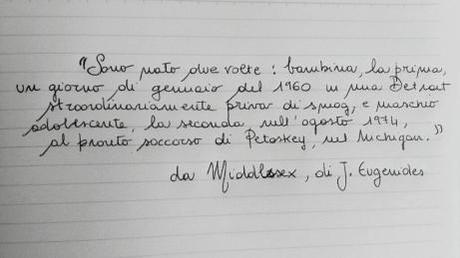 "Sono nato due volte: bambina, la prima,
un giorno di gennaio del 1960 in una Detroit
straordinariamente priva di smog, e maschio
adolescente, la seconda nell'agosto 1974,
al pronto soccorso di Petoskey, nel Michigan."
da Middlesex, di J. Eugenides